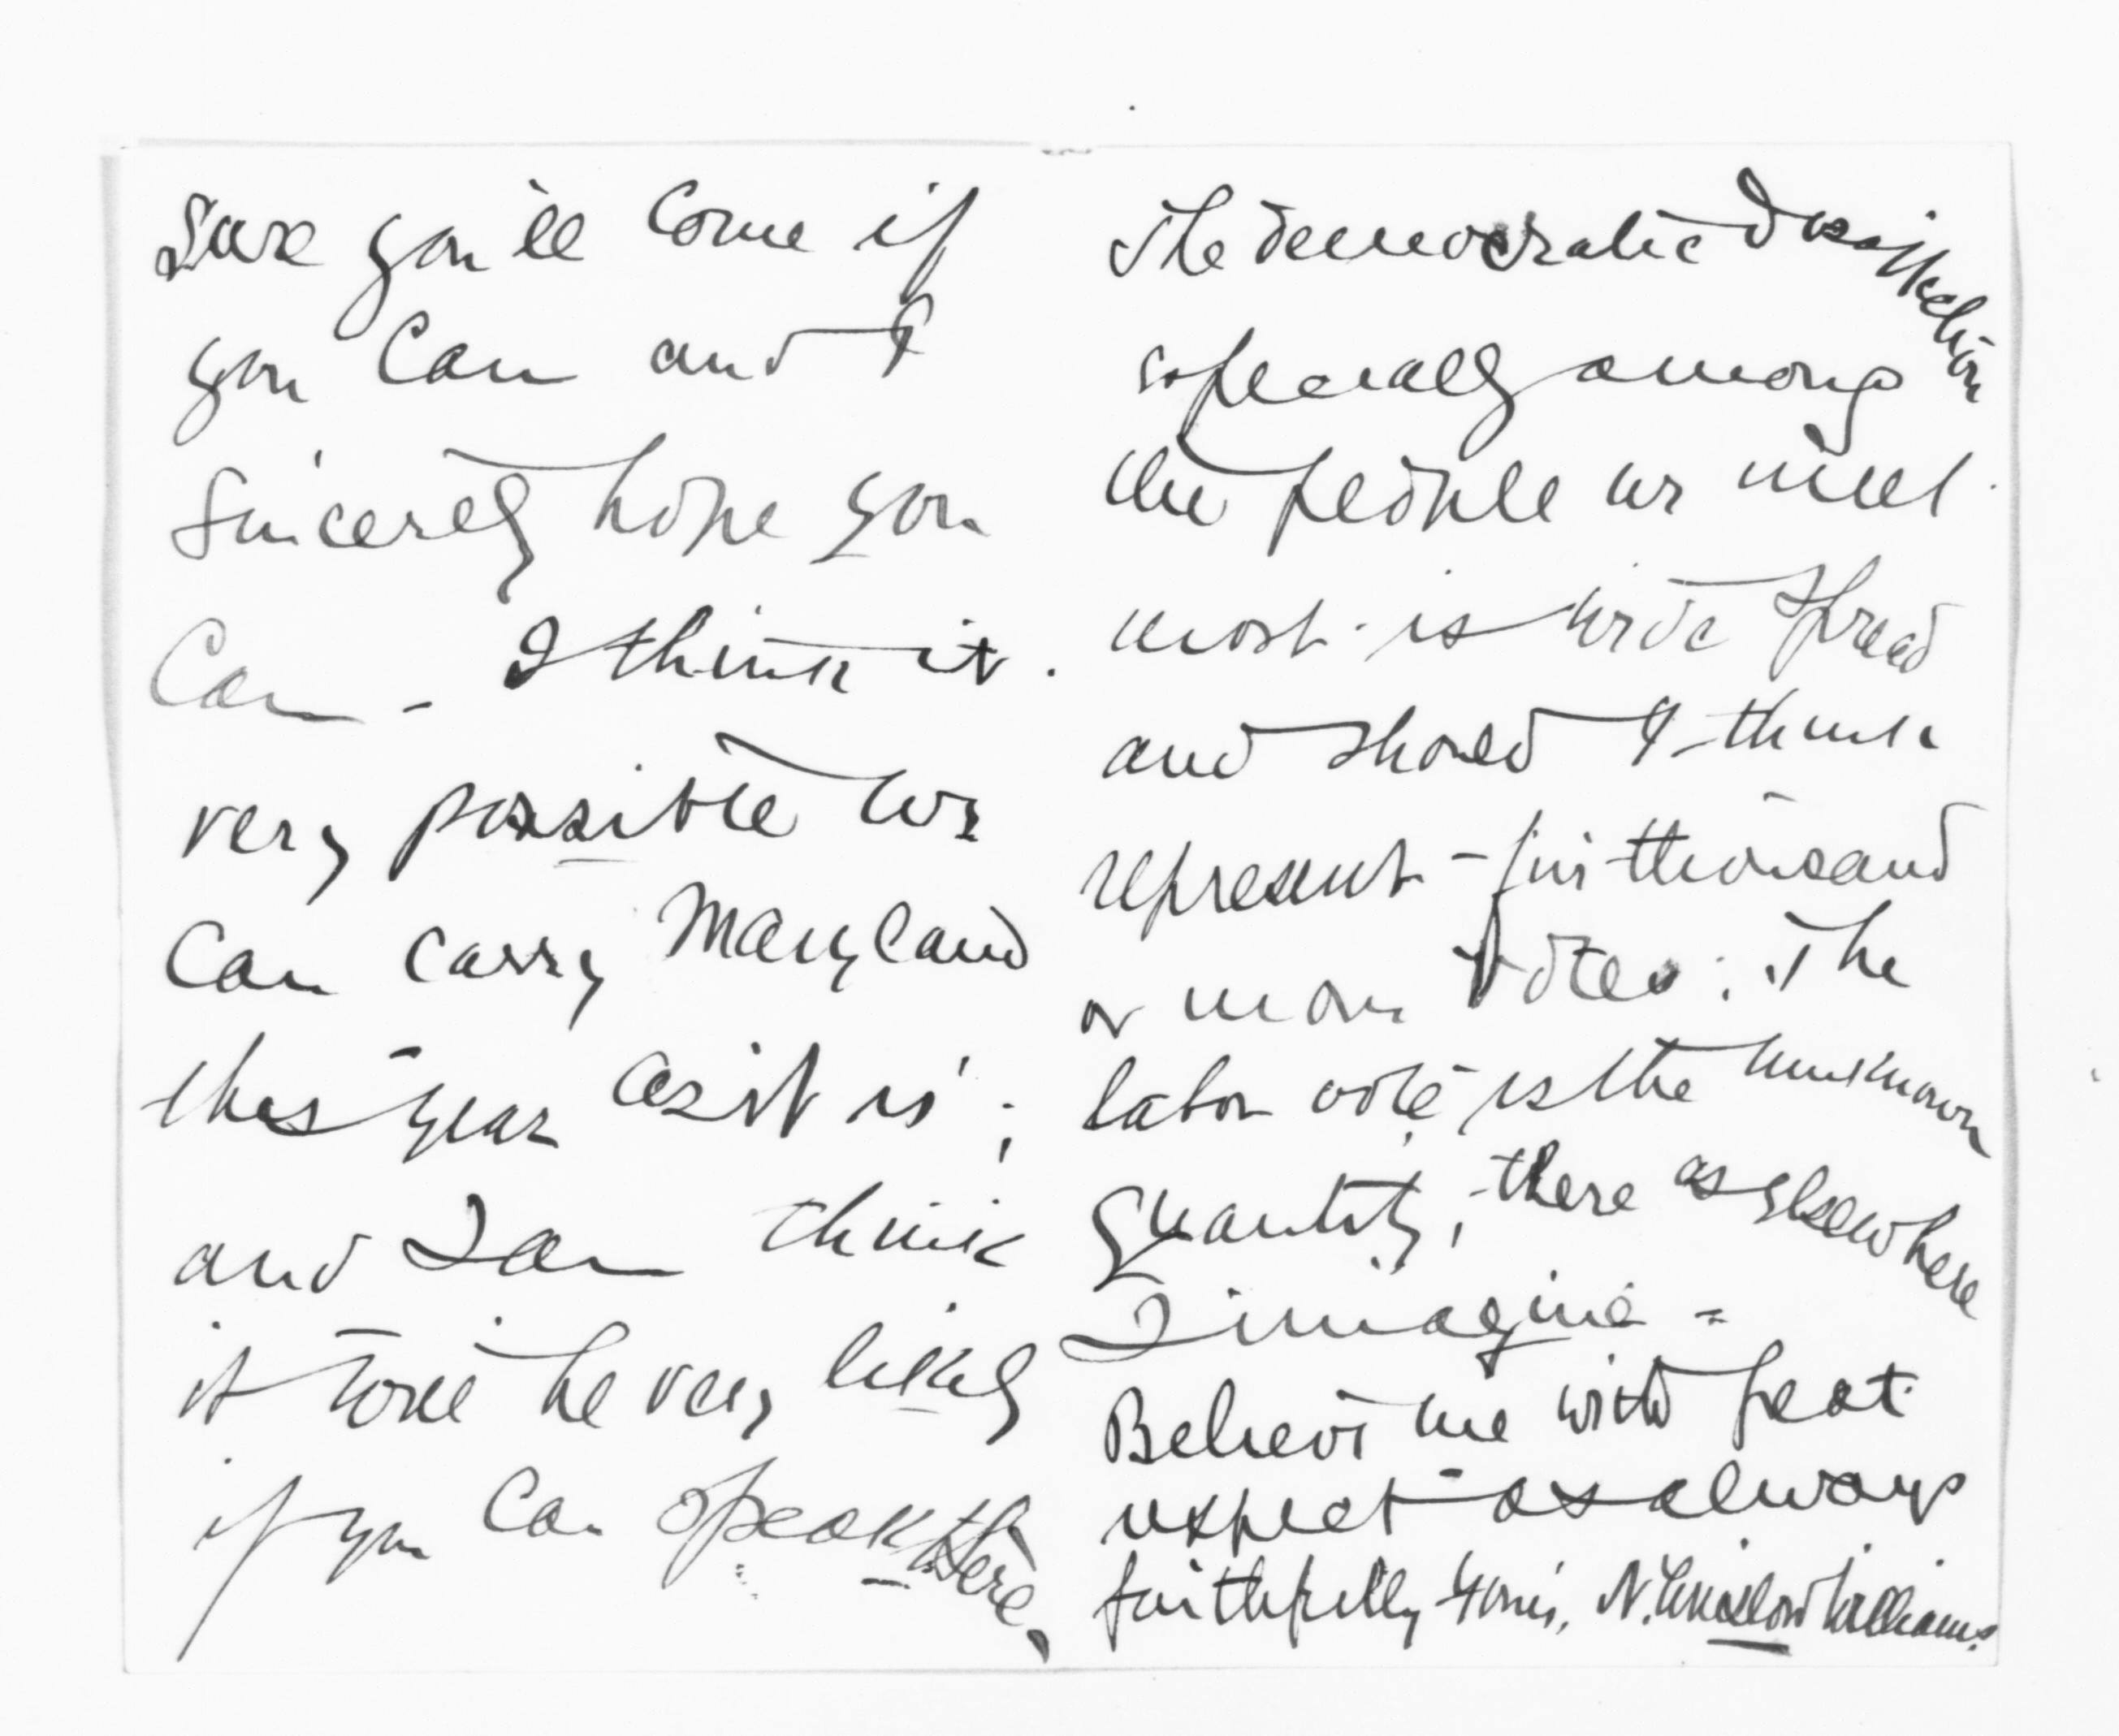 sure you'll come if
you can and I
sincerely hope you
can - I think it
very possible we
can carry Maryland
this year as it is;
and I am think
it will be very likely
if you can speak there,
The democratic disaffection
especially among
the people we meet
most - is wide spread
and should I think
represent - five thousand
or more votes: The
labor vote is the unknown
quantity, there as elsewhere
I imagine -
Believe me with great
respect - as always
faithfully yours, N. Winslow Williams.